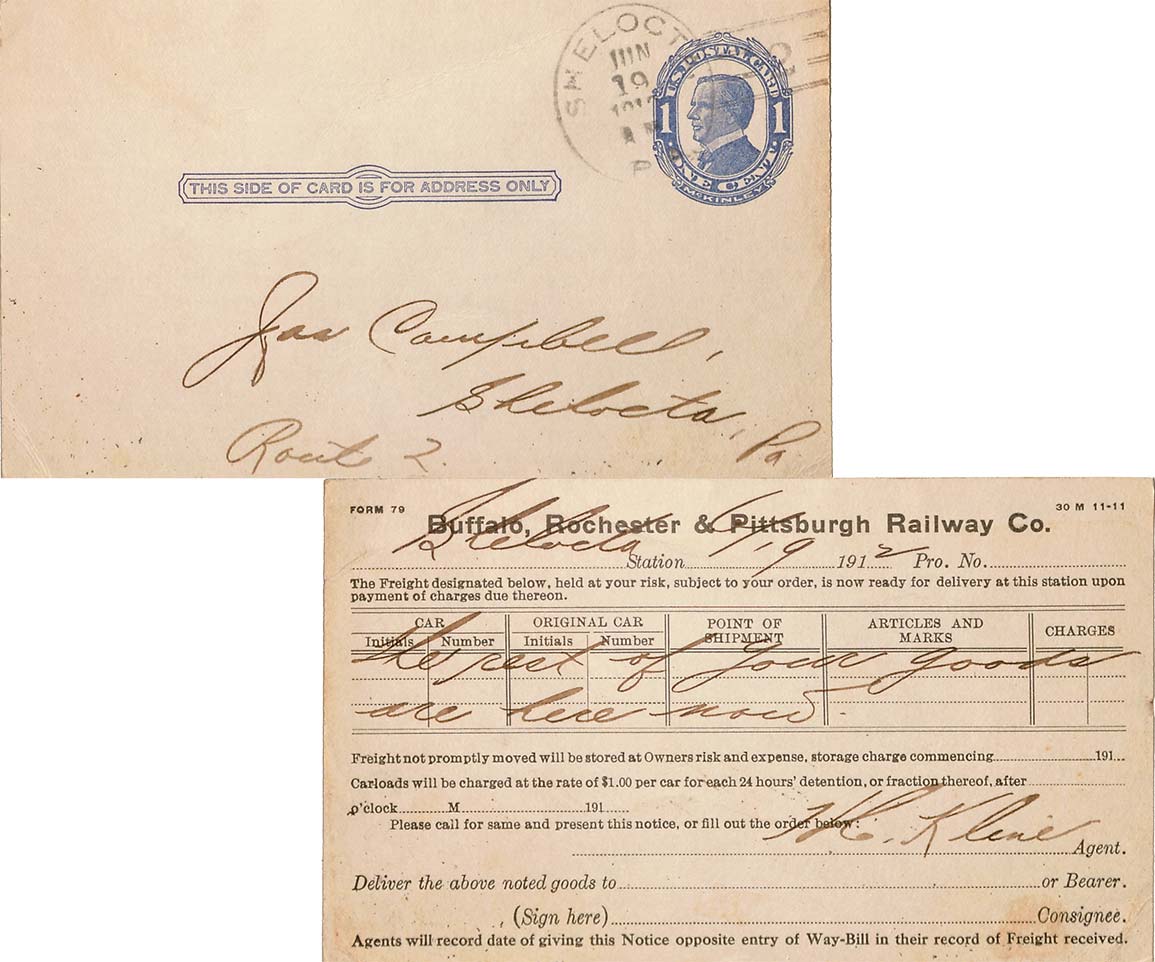 SHELOCT
JUN
19
191
P
U.S. POSTAL CARD
1 1
ONE CENT
McKINLEY
THIS SIDE OF CARD IS FOR ADDRESS ONLY
Jas Campbell,
Shelocta, Pa
Route 2.
FORM 79
30 M 11-11
Buffalo, Rochester & Pittsburgh Railway Co.
Shelocta Station 6/19 1912 Pro. No.
The Freight designated below, held at your risk, subject to your order, is now ready for delivery at this station upon
payment of charges due thereon.
CAR ORIGINAL CAR POINT OF SHIPMENT ARTICLES AND MARKS CHARGES
Initials Number Initials Number
the rest of your goods
are here now.
Freight not promptly moved will be stored at Owners risk and expense, storage charge commencing 191
Carloads will be charged at the rate of $1.00 per car for each 24 hours' detention, or fraction thereof, after
o'clock M 191
Please call for same and present this notice, or fill out the order below:
Kline Agent.
Deliver the above noted goods to or Bearer.
(Sign here) Consignee.
Agents will record date of giving this Notice opposite entry of Way-Bill in their record of Freight received.